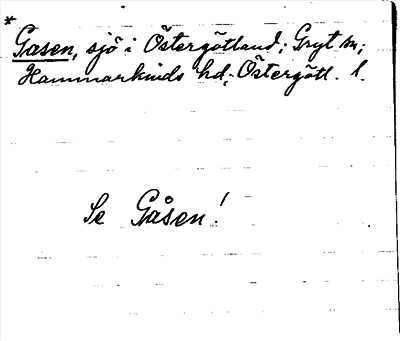 * Gasen, sjö i Östergötland; Gryt sn;
Hammarkinds hd; Östergötl. l.
Se Gåsen!